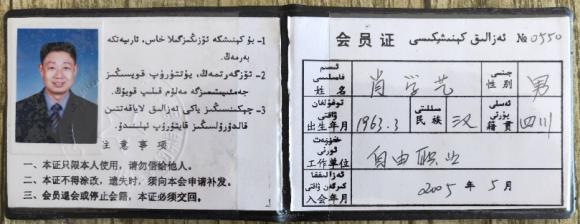 1- بۇ كېنىشكە ئۆزىڭىزگىلا خاس، ئارىيەتكە
بەرمەڭ.
2- ئۆزگەرتمەڭ، يۈتتۈرۈپ قويسىڭىز
جەمئىيىتىمىزگە مەلۇم قىلىپ قويۇڭ.
3- چېكىنسىڭىز ياكى ئەزالىق لاياقەتتىن
قالدۇرۇلسىڭىز قايتۇرۇپ ئېلىنىدۇ.
注意事项
一、本证只限本人使用，请勿借给他人。
二、本证不得涂改，遗失时，须向本会申请补发。
三、会员退会或停止会籍，本证必须交回。
会员证 ئەزالىق كېنىشكىسى № 0550
ئىسىم فامىلىسى
姓名 肖学艺
جىنسى
性别 男
تۇغۇلغان ۋاقتى
出生年月 1963.3
مىللىتى
民族 汉
ئەسلى يۇرتى
籍贯 四川
خىزمەت ئورنى
工作单位 自由职业
ئەزالىققا كىرگەن ۋاقتى
入会年月 2005年5月